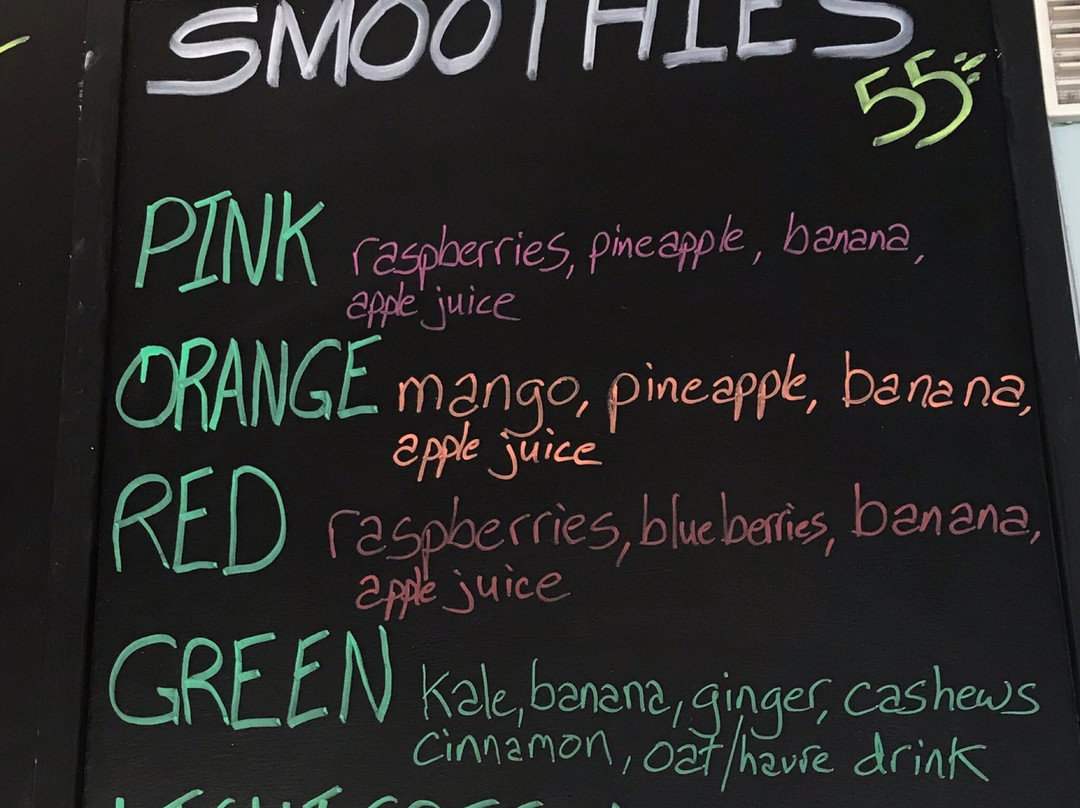 SMOOTHIES
55:-
PINK raspberries, pineapple, banana,
apple juice
ORANGE mango, pineapple, banana,
apple juice
RED raspberries, blueberries, banana,
apple juice
GREEN Kale, banana, ginger, cashews
cinnamon, oat/havre drink